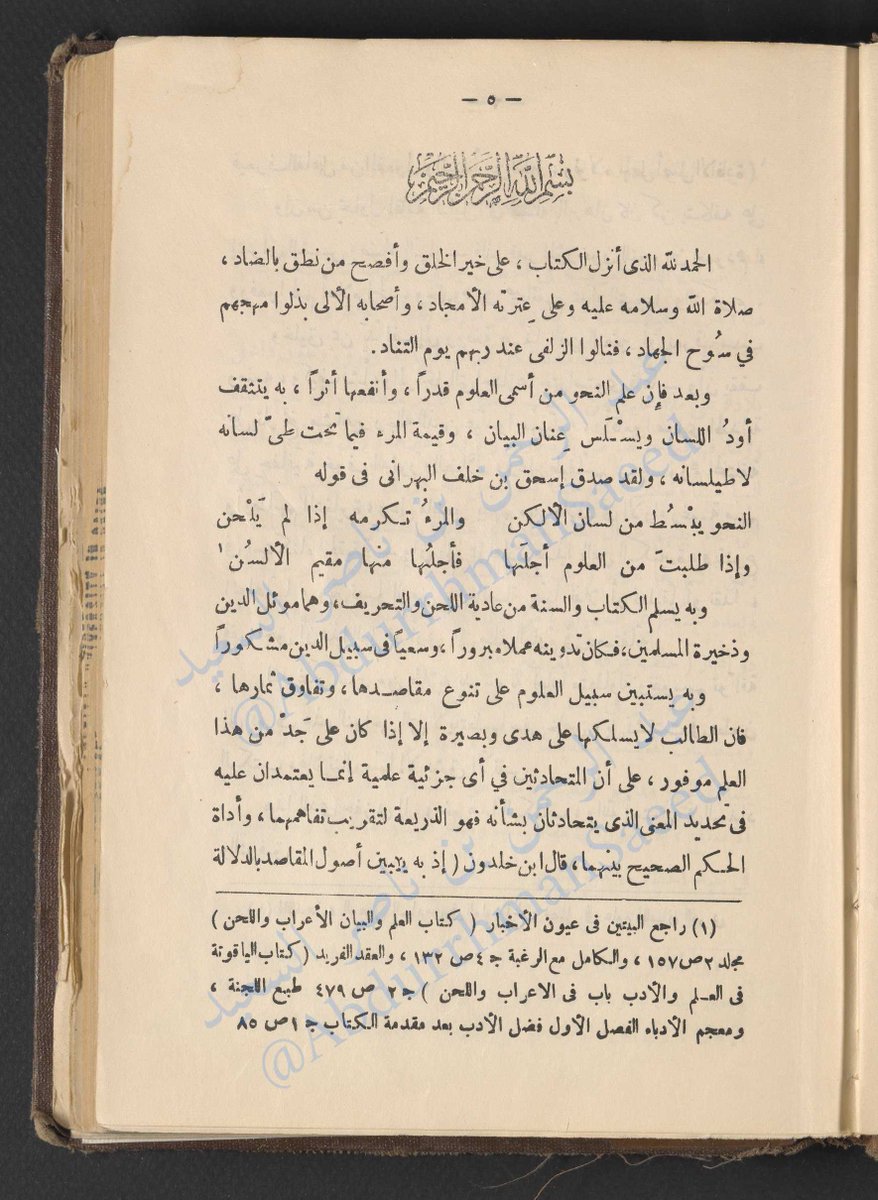 — ٥ —
بسم الله الرحمن الرحيم
الحمد لله الذى أنزل الكتاب ، على خير الخلق وأفصح من نطق بالضاد ،
صلاة الله وسلامه عليه وعلى عِترته الأمجاد ، وأصحابه الألى بذلوا مهجهم
في سُوح الجهاد ، فنالوا الزلفى عند ربهم يوم التناد .
وبعد فإن علم النحو من أسمى العلوم قدراً ، وأنفعها أثراً ، به يتثقف
أودُ اللسان ويسْلَس عِنان البيان ، وقيمة المرء فيما تحت طىّ لسانه
لا طيلسانه ، ولقد صدق إسحق بن خلف البهرانى فى قوله
النحو يبْسُط من لسان الألكن والمرءُ تكرمه إذا لم يَلْحن
وإذا طلبتَ من العلوم أجلَّها فأجلُّها منها مقيم الألسُن ١
وبه يسلم الكتاب والسنة من عادية اللحن والتحريف ، وهما موئل الدين
وذخيرة المسلمين ، فكان تدوينه عملا مبروراً ، وسعياً فى سبيل الدين مشكوراً
وبه يستبين سبيل العلوم على تنوع مقاصدها ، وتفاوق ثمارها ،
فان الطالب لا يسلكها على هدى وبصيرة إلا إذا كان على جَدْ من هذا
العلم موفور ، على أن المتحادثين في أى جزئية علمية إنما يعتمدان عليه
فى تحديد المعنى الذى يتحادثان بشأنه فهو الذريعة لتقريب تفاهمهما ، وأداة
الحكم الصحيح بينهما ، قال ابن خلدون ( إذ به يتبين أصول المقاصد بالدلالة
(١) راجع البيتين فى عيون الأخبار ( كتاب العلم والبيان الأعراب واللحن )
مجلد ٢ ص ١٥٧ ، والكامل مع الرغبة ج ٤ ص ١٣٢ ، والعقد الفريد ( كتاب الياقوتة
فى العلم والأدب باب فى الاعراب واللحن ) ج ٢ ص ٤٧٩ طبع اللجنة ،
ومعجم الأدباء الفصل الأول فضل الأدب بعد مقدمة الكتاب ج ١ ص ٨٥
عبد الرحمن بن ناصر السعيد
@Abdurrhman Saeed
عبد الرحمن بن ناصر السعيد
@Abdurrhman Saeed